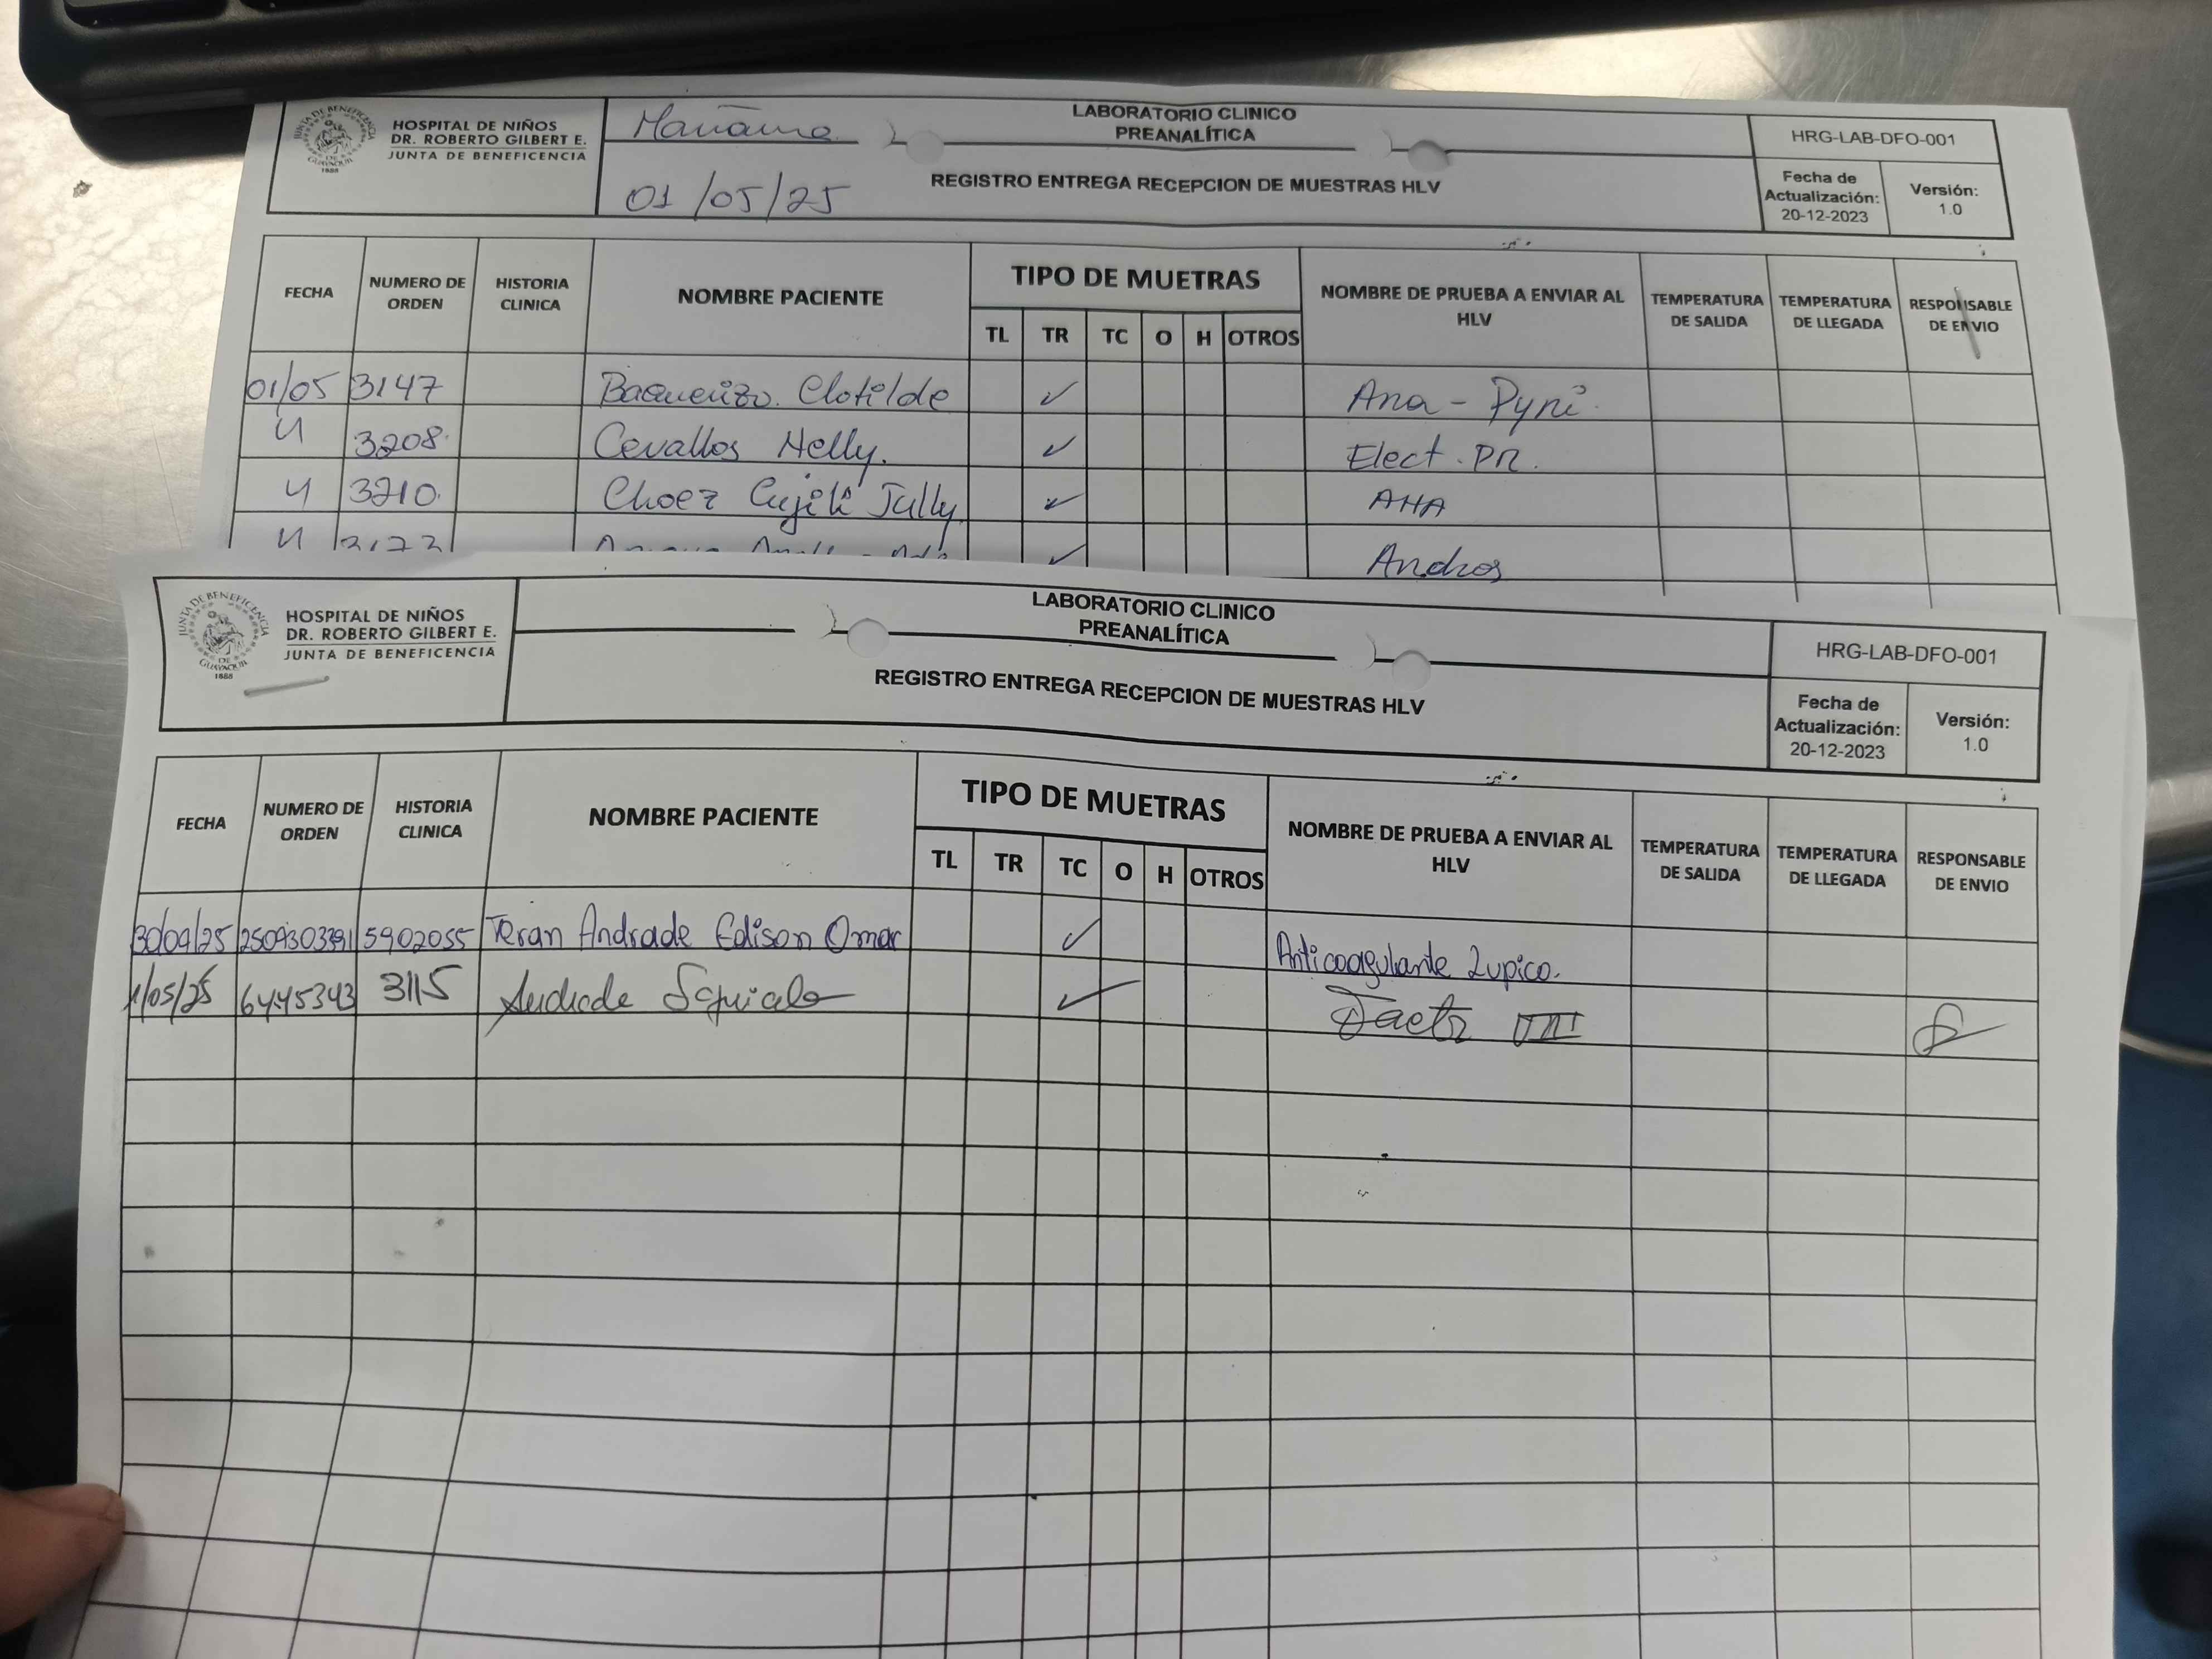 JUNTA DE BENEFICENCIA DE GUAYAQUIL 1888
HOSPITAL DE NIÑOS
DR. ROBERTO GILBERT E.
JUNTA DE BENEFICENCIA
Mañana
01/05/25
LABORATORIO CLINICO
PREANALÍTICA
REGISTRO ENTREGA RECEPCION DE MUESTRAS HLV
HRG-LAB-DFO-001
Fecha de
Actualización:
20-12-2023
Versión:
1.0
FECHA NUMERO DE ORDEN HISTORIA CLINICA NOMBRE PACIENTE TIPO DE MUETRAS NOMBRE DE PRUEBA A ENVIAR AL HLV TEMPERATURA DE SALIDA TEMPERATURA DE LLEGADA RESPONSABLE DE ENVIO
TL TR TC O H OTROS
01/05 3147 Baquerizo. Clotilde ✓ Ana - Pyri.
" 3208. Cevallos Nelly. ✓ Elect. PR.
" 3210. Choez ✓ AHA
" ✓ Andros
JUNTA DE BENEFICENCIA DE GUAYAQUIL 1888
HOSPITAL DE NIÑOS
DR. ROBERTO GILBERT E.
JUNTA DE BENEFICENCIA
LABORATORIO CLINICO
PREANALÍTICA
REGISTRO ENTREGA RECEPCION DE MUESTRAS HLV
HRG-LAB-DFO-001
Fecha de
Actualización:
20-12-2023
Versión:
1.0
FECHA NUMERO DE ORDEN HISTORIA CLINICA NOMBRE PACIENTE TIPO DE MUETRAS NOMBRE DE PRUEBA A ENVIAR AL HLV TEMPERATURA DE SALIDA TEMPERATURA DE LLEGADA RESPONSABLE DE ENVIO
TL TR TC O H OTROS
30/04/25 5902055 Teran Andrade Edison Omar ✓ Anticoagulante Lupico.
1/05/25 6445343 3115 Andrade ✓ Factor VIII